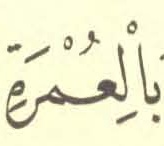 بِالْعُمْرَةِ